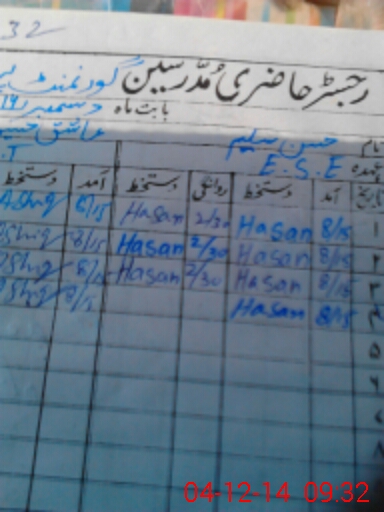 32
رجسٹر حاضری مدرسین گورنمنٹ
بابت ماہ دسمبر
نام حسن سلیم عاشق حسین
عہدہ E.S.E
تاریخ آمد دستخط روانگی دستخط آمد دستخط
۱ 8/15 Hasan 2/30 Hasan 8/15 Ashiq
۲ 8/15 Hasan 2/30 Hasan 8/15 Ashiq
۳ 8/15 Hasan 2/30 Hasan 8/15 Ashiq
۴ 8/15 Hasan 8/15 Ashiq
۵
۶
۷
۸
04-12-14 09:32